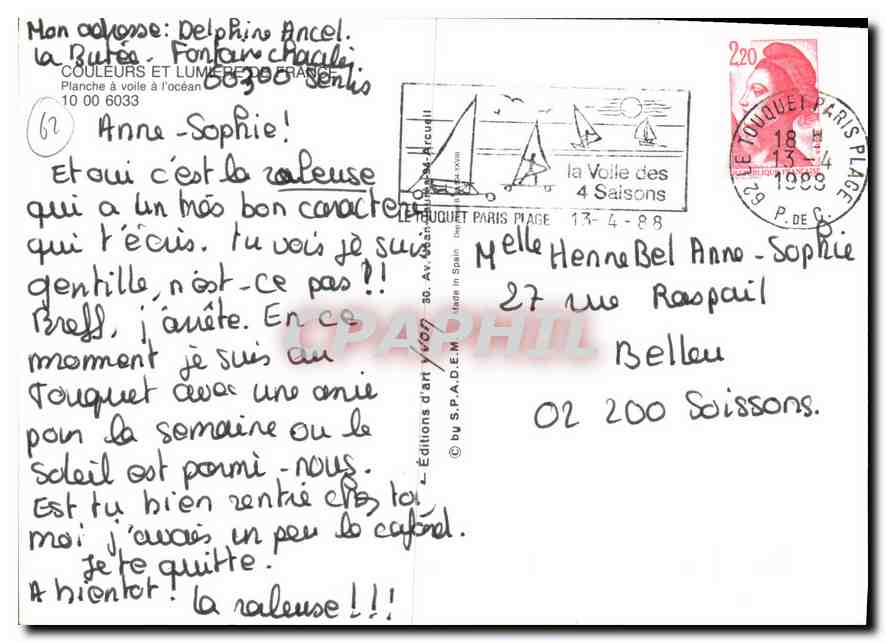 Mon adresse: Delphine Ancel.
La Butée. Fontaine
60300 Senlis
COULEURS ET LUMIÈRE DE FRANCE
Planche à voile à l'océan
10 00 6033
62
Anne-Sophie!
Et oui c'est la raleuse
qui a un très bon caractère
qui t'écris. tu vois je suis
gentille, n'est-ce pas!!
Breff, j'arrête. En ce
moment je suis au
Touquet avec une amie
pour la semaine ou le
soleil est parmi-nous.
Est tu bien rentré chez toi
moi j'avais un peu le cafard.
Je te quitte.
A bientot!
la raleuse!!!
Editions d'art yvon 30. Av.
Arcueil
© by S.P.A.D.E.M.
Made in Spain
la Voile des
4 Saisons
LE TOUQUET PARIS PLAGE 13-4-88
2,20
62 LE TOUQUET-PARIS PLAGE
18 H
13-4
1988
P. DE C.
Melle HenneBel Anne-Sophie
27 rue Raspail
Belleu
02 200 Soissons.
CPAPHIL